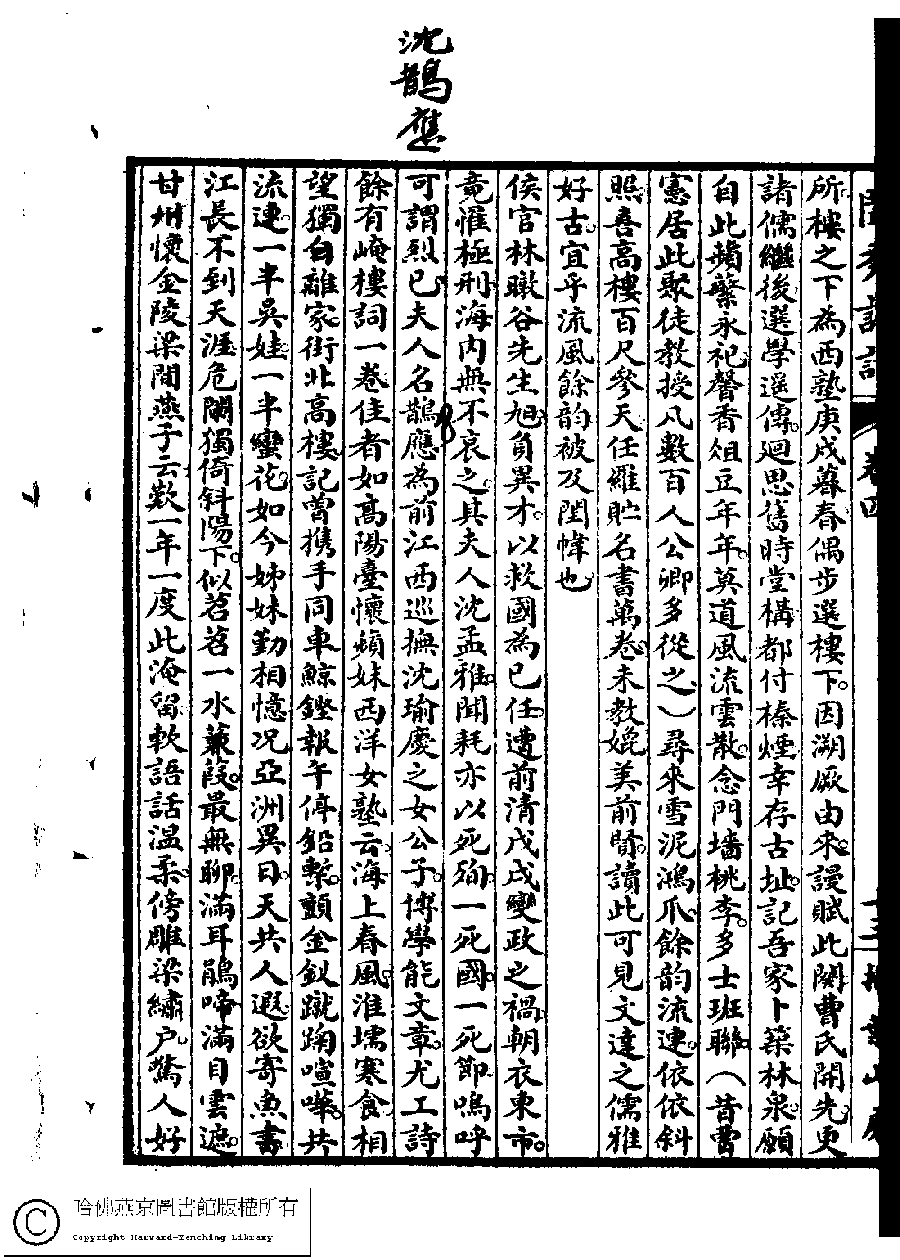 沈鵲應
閨秀詩話
卷四
所樓之下為西塾庚戌暮春偶步選樓下。因溯厥由來。謾賦此闋曹氏開先。更
諸儒繼後。選學遥傳。迴思舊時堂構。都付榛煙。幸存古址。記吾家卜築林泉。願
自此蘋蘩永祀。馨香俎豆年年。莫道風流雲散。念門墻桃李。多士班聯。（昔曹
憲居此聚徒教授凡數百人公卿多從之）尋來雪泥鴻爪。餘韵流連。依依斜
照。喜高樓百尺參天。任羅貯名書萬卷。未教媲美前賢。讀此可見文達之儒雅
好古。宜乎流風餘韵被及閨幃也。
侯官林暾谷先生旭。負異才。以救國為己任。遭前清戊戌變政之禍。朝衣東市。
竟罹極刑。海內無不哀之。其夫人沈孟雅。聞耗亦以死殉。一死國。一死節。嗚呼
可謂烈已。夫人名鵲應為前江西巡撫沈瑜慶之女公子。博學能文章。尤工詩
餘有崦樓詞一卷。佳者如高陽臺懷蘋妹西洋女塾云。海上春風。淮壖寒食。相
望獨自離家。街北高樓。記曾攜手同車。鯨鏗報午停鉛槧。顫金釵蹴踘喧嘩。共
流連。一半吳娃。一半蠻花。如今姊妹勤相憶。况亞洲異日。天共人遐。欲寄魚書。
江長不到天涯。危闌獨倚斜陽下。似苕苕一水蒹葭。最無聊。滿耳鵑啼。滿目雲遮。
甘州懷金陵梁間燕子云。歎一年一度此淹留。軟語話温柔。傍雕梁繡户。驚人好
哈佛燕京圖書館版權所有
Copyright Harvard-Yenching Library